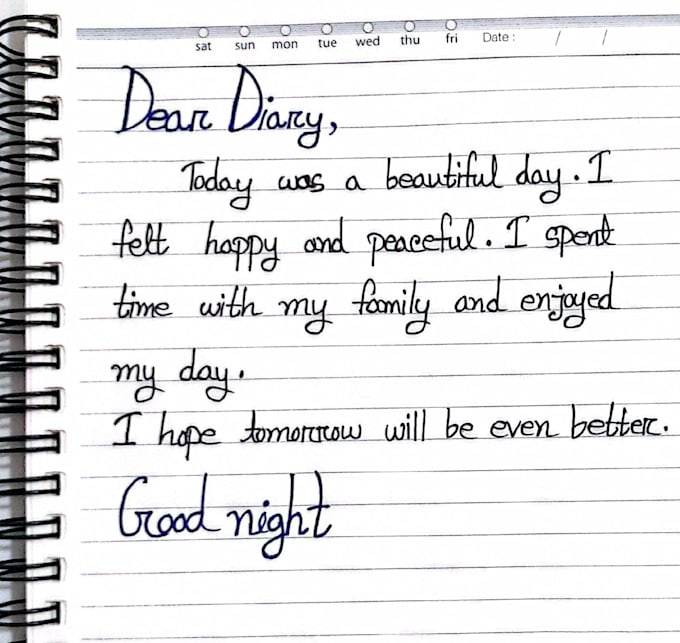 sat sun mon tue wed thu fri Date: / /
Dear Diary,
Today was a beautiful day. I
felt happy and peaceful. I spent
time with my family and enjoyed
my day.
I hope tomorrow will be even better.
Good night